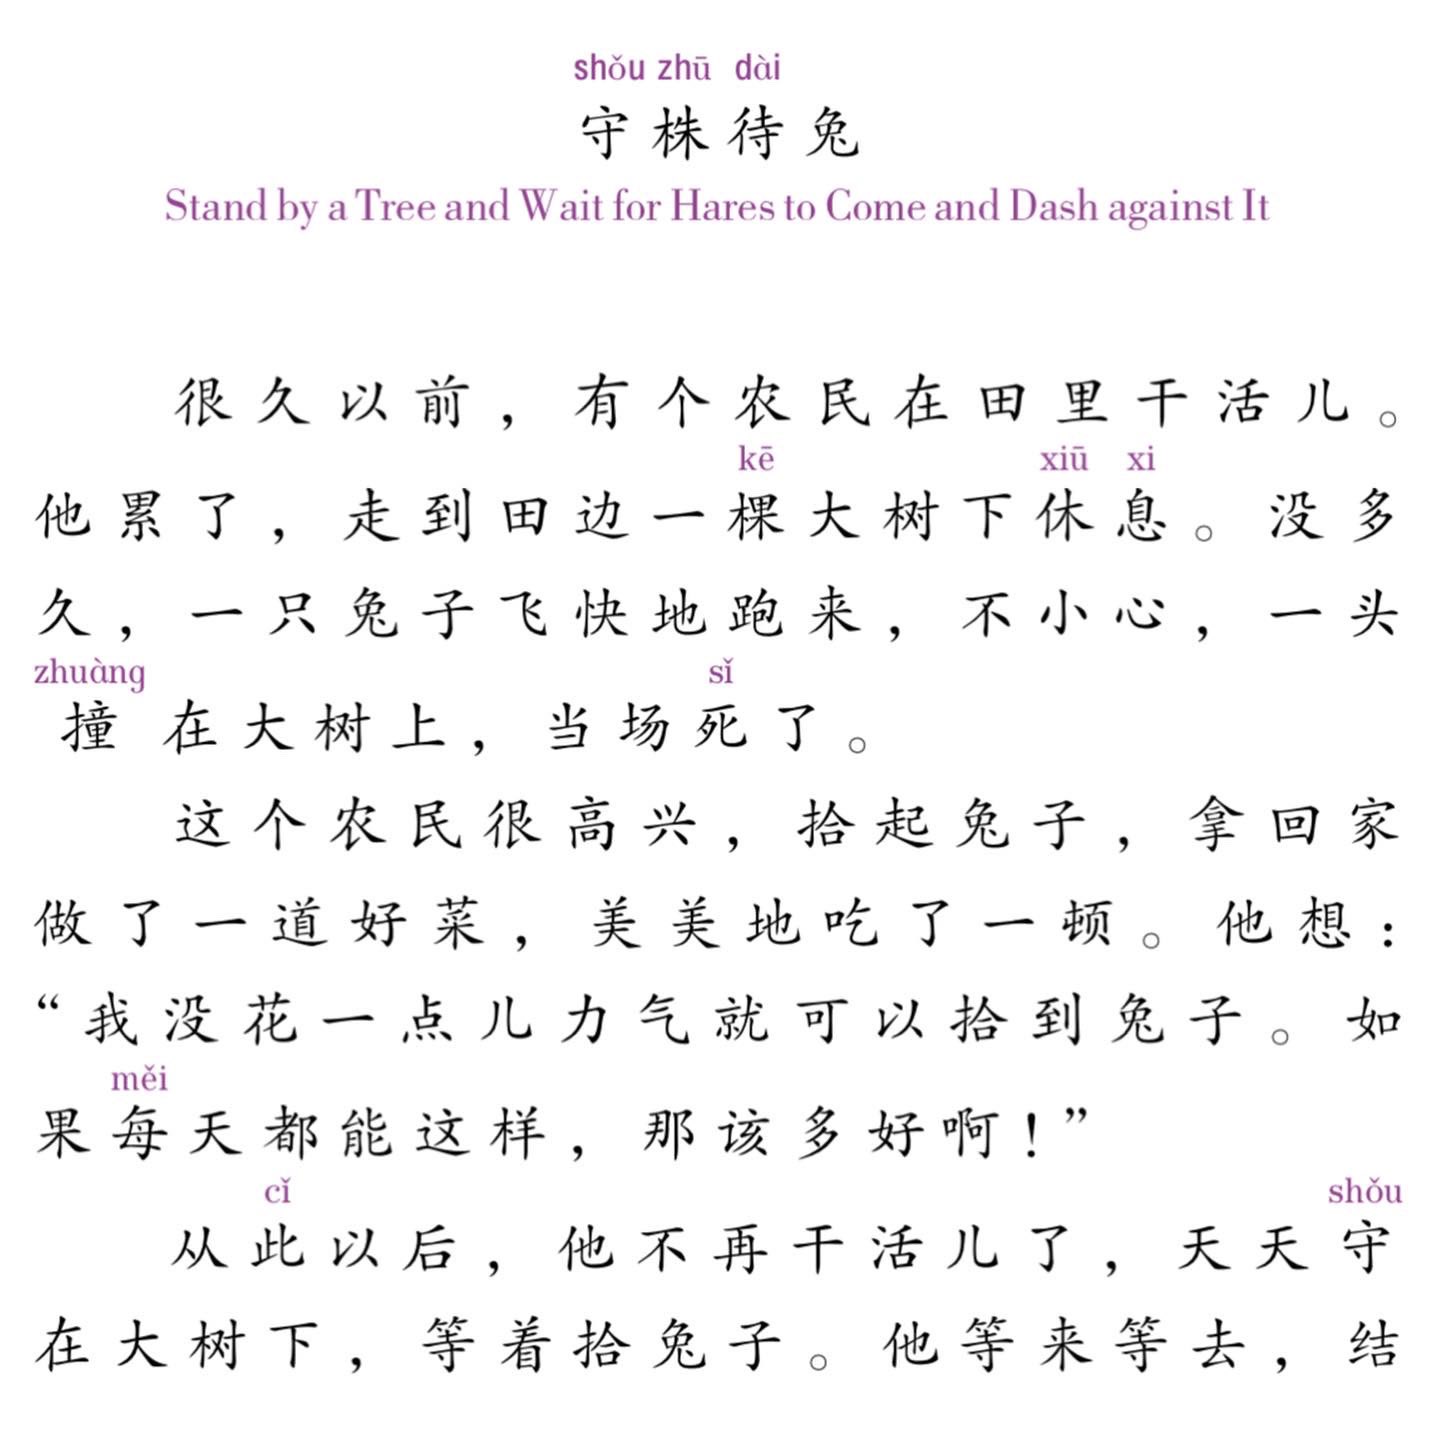 shǒu zhū dài
守株待兔
Stand by a Tree and Wait for Hares to Come and Dash against It
很久以前，有个农民在田里干活儿。
kē xiū xi
他累了，走到田边一棵大树下休息。没多
久，一只兔子飞快地跑来，不小心，一头
zhuàng sǐ
撞在大树上，当场死了。
这个农民很高兴，拾起兔子，拿回家
做了一道好菜，美美地吃了一顿。他想：
“我没花一点儿力气就可以拾到兔子。如
měi
果每天都能这样，那该多好啊！”
cǐ shǒu
从此以后，他不再干活儿了，天天守
在大树下，等着拾兔子。他等来等去，结